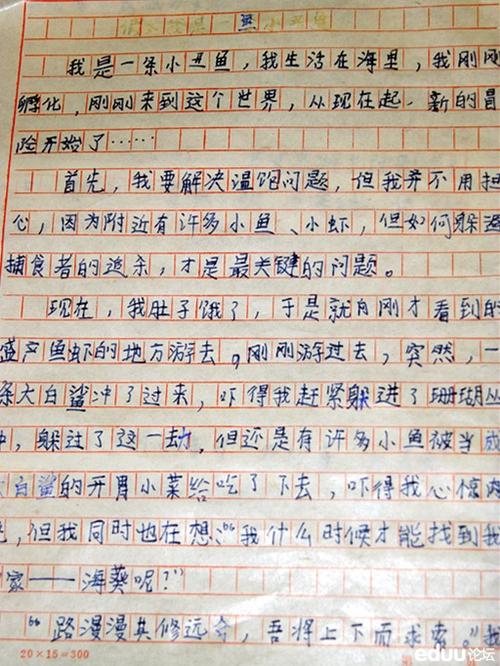 假如我是一小丑鱼
我是一条小丑鱼，我生活在海里，我刚刚
孵化，刚刚来到这个世界，从现在起，新的冒
险开始了……
首先，我要解决温饱问题，但我并不用担
心，因为附近有许多小鱼、小虾，但如何躲避
捕食者的追杀，才是最关键的问题。
现在，我肚子饿了，于是就向刚才看到的
盛产鱼虾的地方游去，刚刚游过去，突然，一
条大白鲨冲了过来，吓得我赶紧躲进了珊瑚丛
中，躲过了这一劫，但还是有许多小鱼被当成
大白鲨的开胃小菜给吃了下去，吓得我心惊肉
，但我同时也在想：“我什么时候才能找到我
家——海葵呢？”
“路漫漫其修远兮，吾将上下而求索。”我
20×15=300
eduu论坛